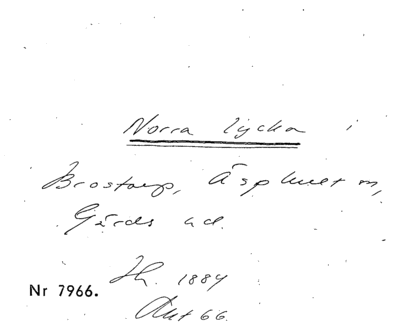 Norra lycka i
Brostorp, Äsphult m,
Gärds hd.
Hh. 1884
Nr 7966.
Akt 66.